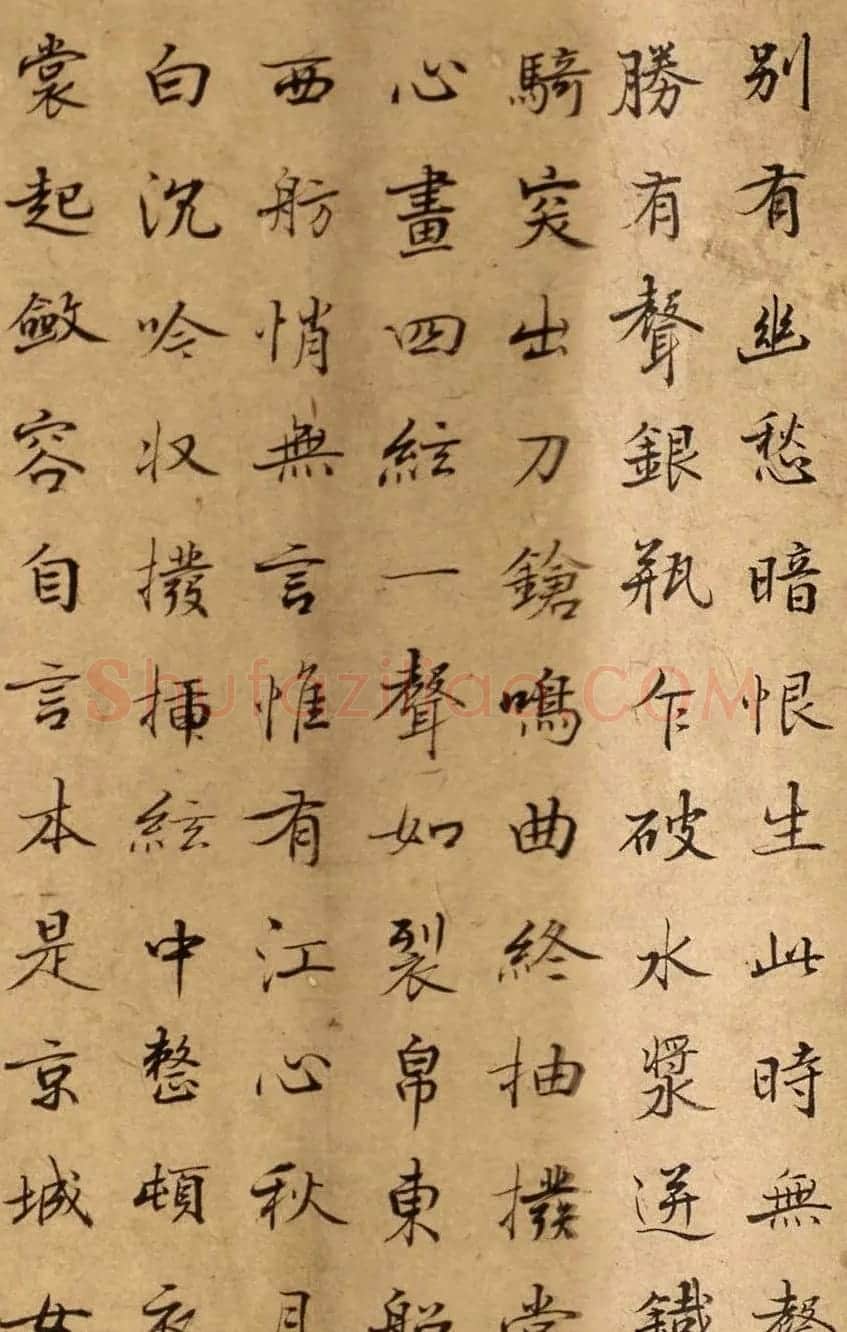 别有幽愁暗恨生此時無聲
勝有聲銀瓶乍破水漿迸鐵
騎突出刀鎗鳴曲終抽撥當
心畫四絃一聲如裂帛東船
西舫悄無言惟有江心秋月
白沉吟收撥插絃中整頓衣
裳起斂容自言本是京城女
Shufaziliao.COM